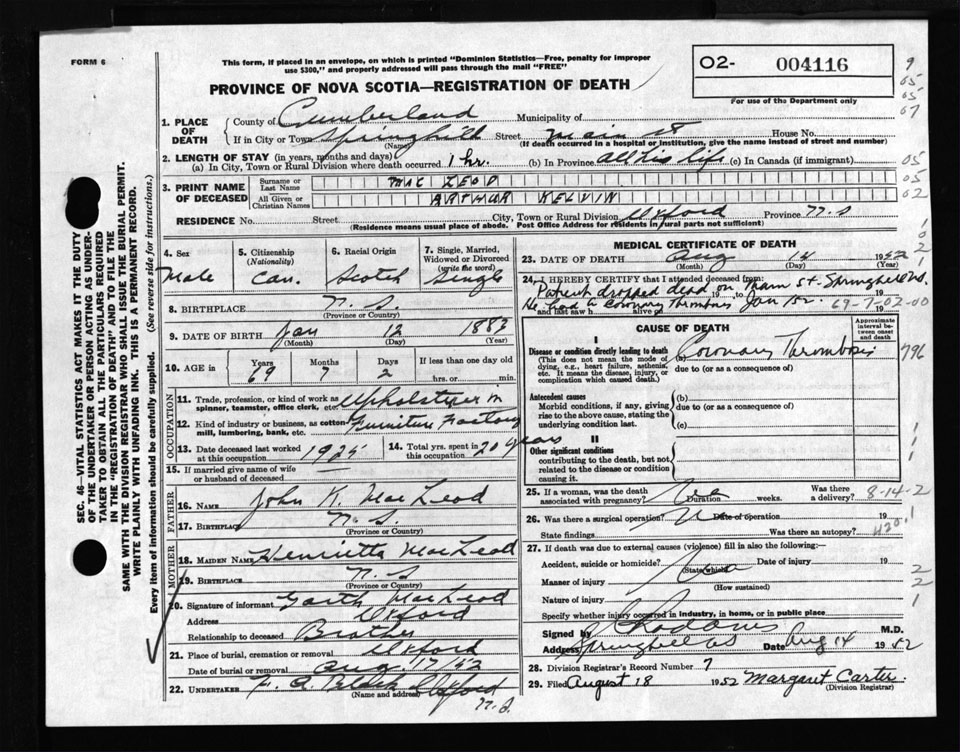 FORM 6
This form, if placed in an envelope, on which is printed "Dominion Statistics—Free, penalty for improper
use $300," and properly addressed will pass through the mail "FREE"
O2- 004116
For use of the Department only
9
05
05
67
05
05
02
PROVINCE OF NOVA SCOTIA—REGISTRATION OF DEATH
1. PLACE OF DEATH
County of Cumberland Municipality of
If in City or Town Springhill Street Main St House No.
(Name) (If death occurred in a hospital or institution, give the name instead of street and number)
2. LENGTH OF STAY (in years, months and days)
(a) In City, Town or Rural Division where death occurred 1 hr. (b) In Province all his life (c) In Canada (if immigrant)
3. PRINT NAME OF DECEASED
Surname or Last Name MAC LEOD
All Given or Christian Names ARTHUR KELVIN
RESIDENCE No. Street City, Town or Rural Division Oxford Province N.S
(Residence means usual place of abode. Post Office Address for residents in rural parts not sufficient)
4. Sex Male
5. Citizenship (Nationality) Can.
6. Racial Origin Scotch
7. Single, Married, Widowed or Divorced (write the word) Single
8. BIRTHPLACE N.S.
(Province or Country)
9. DATE OF BIRTH Jan 12 1883
(Month) (Day) (Year)
10. AGE in Years 69 Months 7 Days 2 If less than one day old
hrs. or min.
OCCUPATION
11. Trade, profession, or kind of work as spinner, teamster, office clerk, etc. Upholsterer in
12. Kind of industry or business, as cotton mill, lumbering, bank, etc. Furniture Factory
13. Date deceased last worked at this occupation 1925
14. Total yrs. spent in this occupation 20 years
15. If married give name of wife or husband of deceased
FATHER
16. NAME John K. MacLeod
17. BIRTHPLACE N.S.
(Province or Country)
MOTHER
18. MAIDEN NAME Henrietta MacLeod
19. BIRTHPLACE N.S
(Province or Country)
20. Signature of informant Garth MacLeod
Address Oxford
Relationship to deceased Brother
21. Place of burial, cremation or removal Oxford
Date of burial or removal Aug. 17/52
22. UNDERTAKER F. A. Oxford
(Name and address)
N.S.
MEDICAL CERTIFICATE OF DEATH
23. DATE OF DEATH Aug 14 1952
(Month) (Day) (Year)
24. I HEREBY CERTIFY that I attended deceased from:
Patient dropped dead on Main St. Springhill NS. 19
He had a Coronary Thrombus Jan 1952. 69-7-02-00
and last saw h alive on 19
CAUSE OF DEATH
Approximate interval between onset and death
I
Disease or condition directly leading to death (a) Coronary Thrombosis 796
(This does not mean the mode of dying, e.g., heart failure, asthenia, etc. It means the disease, injury, or complication which caused death.)
due to (or as a consequence of)
Antecedent causes
Morbid conditions, if any, giving rise to the above cause, stating the underlying condition last.
(b)
due to (or as a consequence of)
(c)
II
Other significant conditions
contributing to the death, but not related to the disease or condition causing it.
25. If a woman, was the death associated with pregnancy? Duration weeks. Was there a delivery? 8-14-2
26. Was there a surgical operation? Date of operation 19
State findings Was there an autopsy?
27. If death was due to external causes (violence) fill in also the following:—
Accident, suicide or homicide? Date of injury 19
(State which)
Manner of injury
(How sustained)
Nature of injury
Specify whether injury occurred in industry, in home, or in public place
Signed by M.D.
Address Springhill NS Date Aug 14 1952
28. Division Registrar's Record Number 7
29. Filed August 18 1952 Margaret Carter
(Division Registrar)
SEC. 46—VITAL STATISTICS ACT MAKES IT THE DUTY
OF THE UNDERTAKER OR PERSON ACTING AS UNDER-
TAKER TO OBTAIN ALL THE PARTICULARS REQUIRED
IN THE "REGISTRATION OF DEATH" AND TO FILE THE
SAME WITH THE DIVISION REGISTRAR WHO SHALL ISSUE THE BURIAL PERMIT.
WRITE PLAINLY WITH UNFADING INK. THIS IS A PERMANENT RECORD.
Every item of information should be carefully supplied. (See reverse side for instructions.)